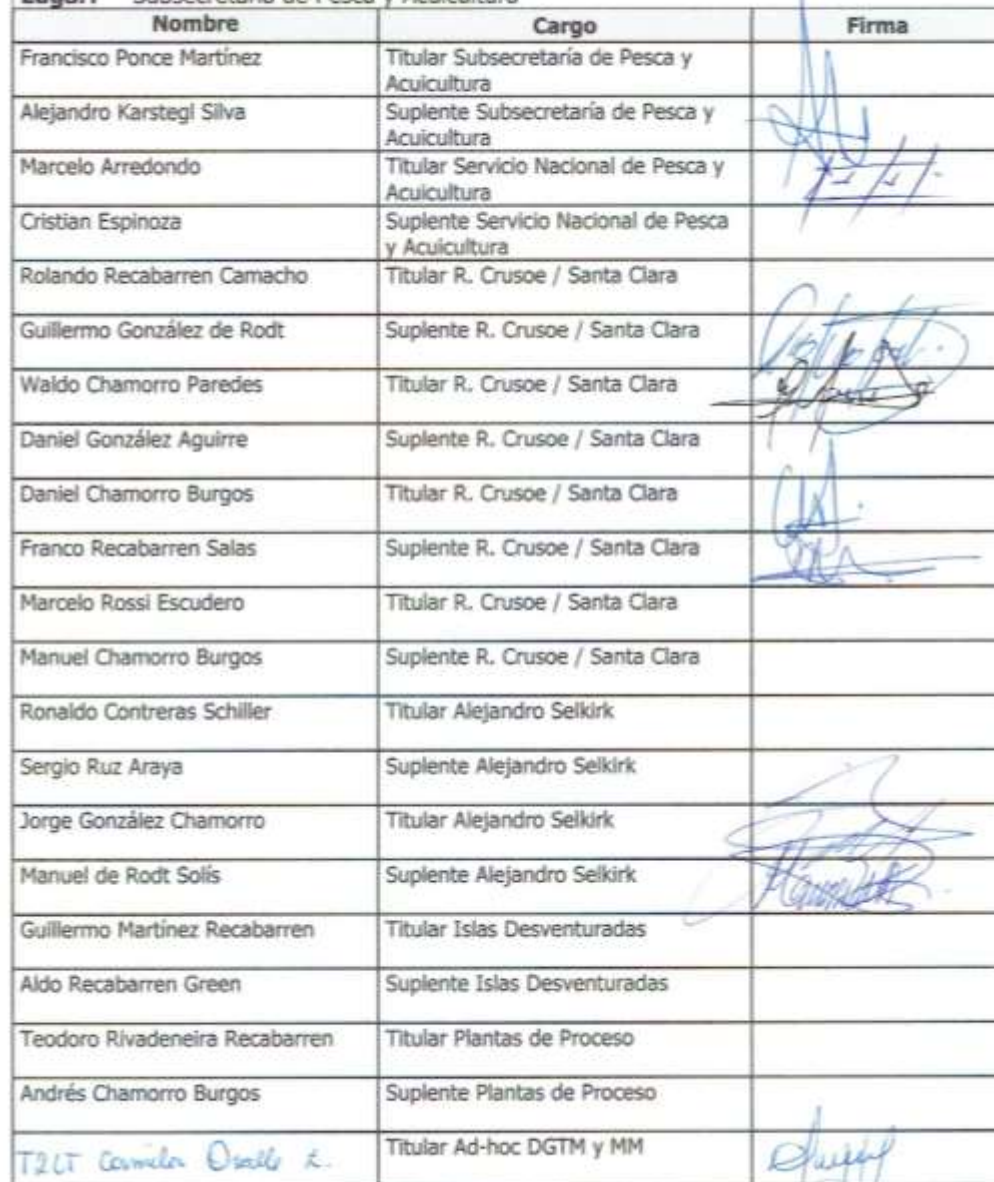 Subsecretaría de Pesca y Acuicultura
Nombre Cargo Firma
Francisco Ponce Martínez Titular Subsecretaría de Pesca y
Acuicultura
Alejandro Karstegl Silva Suplente Subsecretaría de Pesca y
Acuicultura
Marcelo Arredondo Titular Servicio Nacional de Pesca y
Acuicultura
Cristian Espinoza Suplente Servicio Nacional de Pesca
y Acuicultura
Rolando Recabarren Camacho Titular R. Crusoe / Santa Clara
Guillermo González de Rodt Suplente R. Crusoe / Santa Clara
Waldo Chamorro Paredes Titular R. Crusoe / Santa Clara
Daniel González Aguirre Suplente R. Crusoe / Santa Clara
Daniel Chamorro Burgos Titular R. Crusoe / Santa Clara
Franco Recabarren Salas Suplente R. Crusoe / Santa Clara
Marcelo Rossi Escudero Titular R. Crusoe / Santa Clara
Manuel Chamorro Burgos Suplente R. Crusoe / Santa Clara
Ronaldo Contreras Schiller Titular Alejandro Selkirk
Sergio Ruz Araya Suplente Alejandro Selkirk
Jorge González Chamorro Titular Alejandro Selkirk
Manuel de Rodt Solís Suplente Alejandro Selkirk
Guillermo Martínez Recabarren Titular Islas Desventuradas
Aldo Recabarren Green Suplente Islas Desventuradas
Teodoro Rivadeneira Recabarren Titular Plantas de Proceso
Andrés Chamorro Burgos Suplente Plantas de Proceso
T2LT Titular Ad-hoc DGTM y MM